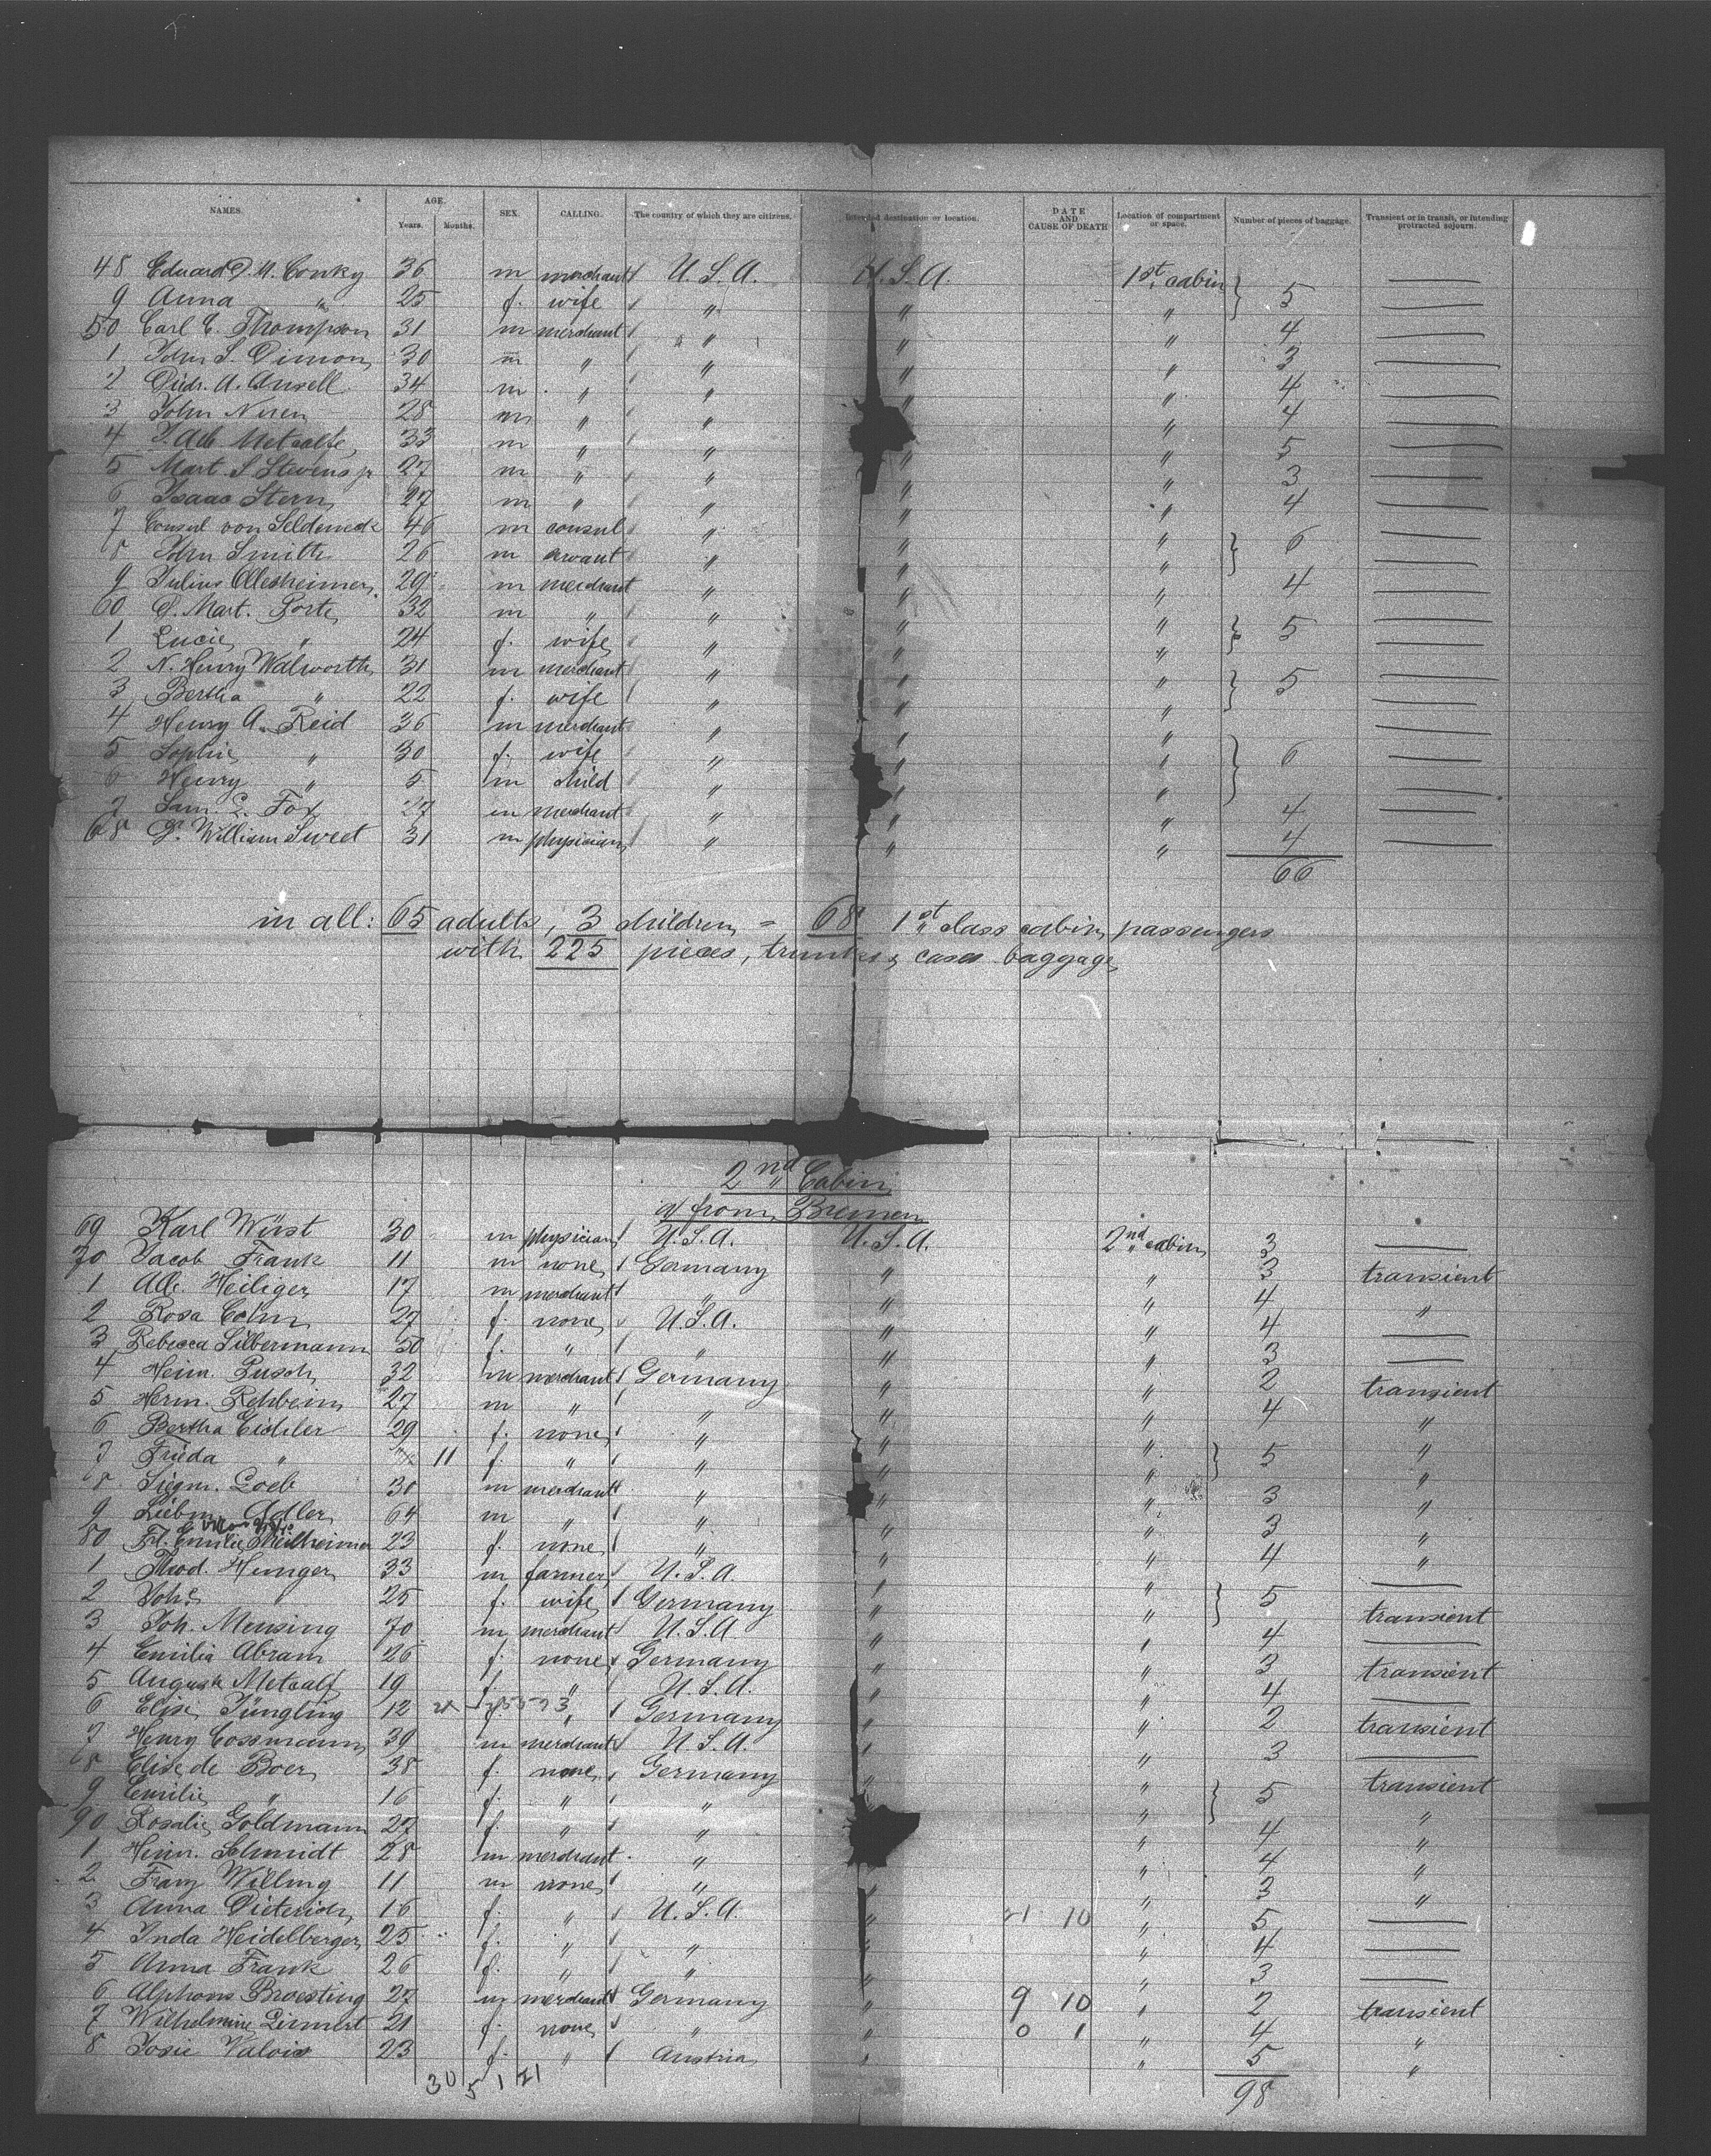 NAMES. AGE. Years. Months. SEX. CALLING. The country of which they are citizens. Intended destination or location. DATE AND CAUSE OF DEATH Location of compartment or space. Number of pieces of baggage. Transient or in transit, or intending protracted sojourn.
48 Eduard D. A. Conky 36 m merchant U.S.A. U.S.A. 1st cabin
9 Anna " 25 f. wife " " " 5
50 Carl C. Thompson 31 m merchant " " " 4
1 John S. Dimon 30 m " " " " 3
2 Diedr. A. Ansell 34 m " " " " 4
3 John Niren 28 m " " " " 4
4 Metcalfe 33 m " " " " 5
5 Mart. S Stevens jr 27 m " " " " 3
6 Isaac Stern 27 m " " " " 4
7 Consul von Seldeneck 46 m consul " " " 6
8 John Smith 26 m servant " " "
9 Julius Ollesheimer 29 m merchant " " " 4
60 D. Mart. Porte 32 m " " " "
1 Lucie " 24 f. wife " " " 5
2 N. Henry Walworth 31 m merchant " " "
3 Bertha " 22 f. wife " " " 5
4 Henry A. Reid 36 m merchant " " "
5 Sophie " 30 f. wife " " " 6
6 Henry " 5 m child " " "
7 Sam. C. Fox 27 m merchant " " " 4
68 Dr. William Sweet 31 m physician " " " 4
66
in all: 65 adults, 3 children = 68 1st class cabin passengers
with 225 pieces, trunks, cases baggage
2nd Cabin
a/ from Bremen
69 Karl Wüst 30 m physician U.S.A. U.S.A. 2nd cabin 3
70 Jacob Frank 11 m none Germany " " 3 transient
1 Alb. Heiliger 17 m merchant " " " 4 "
2 Rosa Cohn 27 f. none U.S.A. " " 4
3 Rebecca Silbermann 50 f. " " " " 3
4 Heinr. Pusch 32 m merchant Germany " " 2 transient
5 Herm. Rehbein 27 m " " " " 4 "
6 Bertha Eichler 29 f. none " " " "
7 Frieda " 11 f. " " " " 5 "
8 Siegm. Loeb 30 m merchant " " " 3 "
9 Liebm. Adler 64 m " " " " 3 "
80 Frl. Emilie 23 f. none " " " 4 "
1 Theod. Hunger 33 m farmer U.S.A. " "
2 Johe " 25 f. wife Germany " " 5 transient
3 Joh. Mensing 70 m merchant U.S.A " " 4
4 Emilia Abram 26 f. none Germany " " 3 transient
5 August Metcalf 19 f. " U.S.A. " " 4
6 Elise Jüngling 12 f. " Germany " " 2 transient
7 Henry Cossmann 39 m merchant U.S.A. " " 3
8 Elise de Boer 38 f. none Germany " " transient
9 Emilie " 16 f. " " " " 5 "
90 Rosalie Goldmann 27 f. " " " " 4 "
1 Heinr. Schmidt 28 m merchant " " " 4 "
2 Franz Willing 11 m none " " " 3 "
3 Anna Dieterich 16 f. " U.S.A. " 21 10 " 5
4 Inda Heidelberger 25 f. " " " " 4
5 Anna Frank 26 f. " " " " 3
6 Alphons Broesting 27 m merchant Germany " 9 10 " 2 transient
7 Wilhelmine 21 f. none " " 0 1 " 4 "
8 Josie Valois 23 f. " Austria " " 5 "
30 5 1 21 98